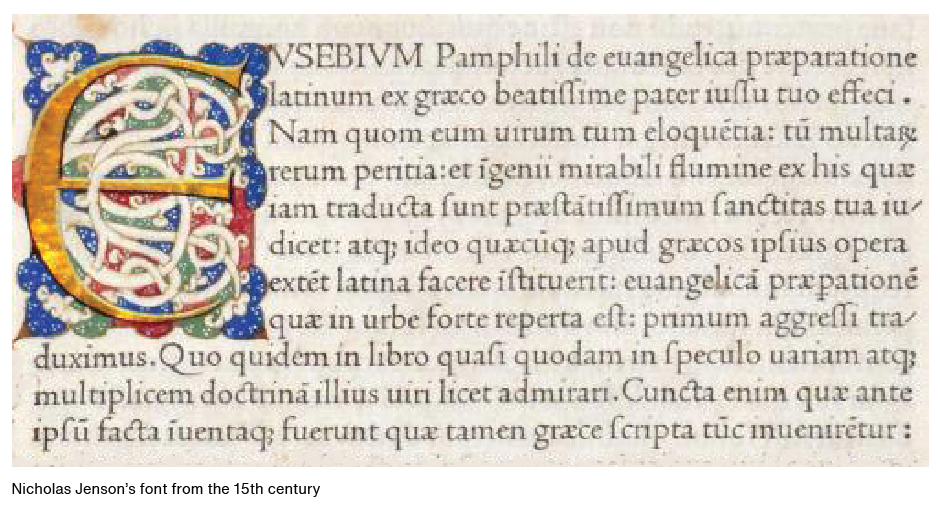 EVSEBIVM Pamphili de euangelica præparatione
latinum ex græco beatiſſime pater iuſſu tuo effeci .
Nam quom eum uirum tum eloquētia: tū multaꝝ
rerum peritia: et īgenii mirabili flumine ex his quæ
iam traducta ſunt præſtātiſſimum ſanctitas tua iu⸗
dicet: atq; ideo quæcūq; apud græcos ipſius opera
extēt latina facere īſtituerit: euangelicā præpationē
quæ in urbe forte reperta eſt: primum aggreſſi tra⸗
duximus. Quo quidem in libro quaſi quodam in ſpeculo uariam atq;
multiplicem doctrinā illius uiri licet admirari. Cuncta enim quæ ante
ipſū facta īuentaq; fuerunt quæ tamen græce ſcripta tūc inuenirētur :
Nicholas Jenson's font from the 15th century